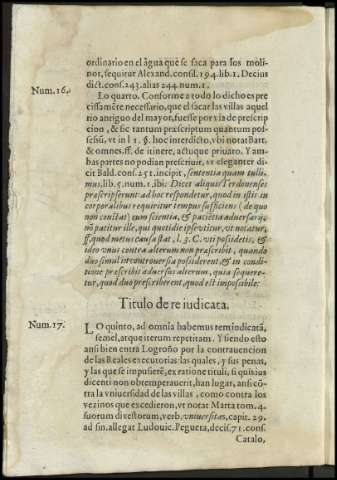 ordinario en el agua que se saca para los moli-
nos, sequitur Alexand. consil. 194. lib. 1. Decius
dict. cons. 243. alias 244. num. 1.
Num. 16.
Lo quarto. Conforme a todo lo dicho es pre-
cissamẽte necessario, que el sacar las villas aquel
rio antiguo del mayor, fuesse por via de prescrip
cion, & sic tantum præscriptum quantum pos-
sessũ, vt in l 1. §. hoc interdicto, vbi notat Bart.
& omnes. ff. de itinere, actuque priuato. Y am-
bas partes no podian prescriuir, vt eleganter di-
cit Bald. cons. 251. incipit, sententia quam tuli-
mus, lib. 5. num. 1. ibi: Dicet aliquis Terdonenses
præscripserunt ad hoc respondetur, quod in istis in
corporalibus requiritur tempus sufficiens (de quo
non constat) cum scientia, & paciẽtia aduersarij,
ff. quod metus causa est, l. 3. C. vti possidetis, &
ideo vnus contra alterum non præscribit, quando
duo simul in controuersia possiderent, & in condi-
tione præscribit aduersus alterum, quia sequere-
tur, quod duo præscriberent, quod est impossibile:
Titulo de re iudicata.
Num. 17.
LO quinto, ad omnia habemus rem iudicatã,
semel, atque iterum repetitam. Y siendo esto
ansi bien entra Logroño por la contrauencion
de las Reales executorias las quales, y sus penas,
y las que se impusierẽ, ex ratione tituli, si quis ius
dicenti non obtemperauerit, han lugar, ansi cõ-
tra la vniuersidad de las villas, como contra los
vezinos que excedieron, vt notat Marta tom. 4.
suorum digestorum, verb. vniuersitas, capit. 29.
ad fin. allegat Ludouic. Peguera, decis. 71. cons.
Catalo,